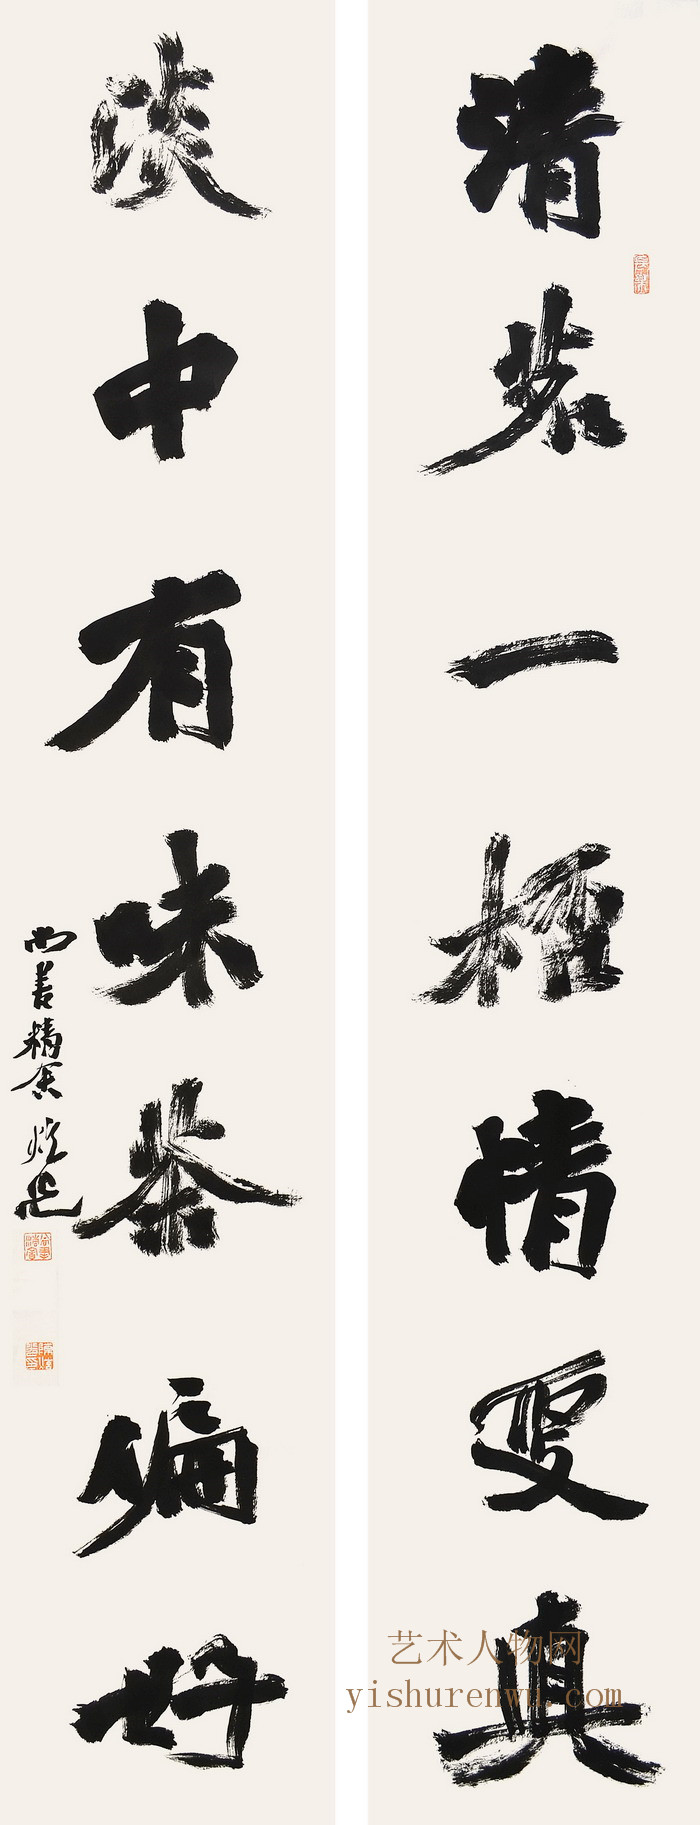 清茗一桮情更真
淡中有味茶偏好
尚善精舍
艺术人物网
yishurenwu.com